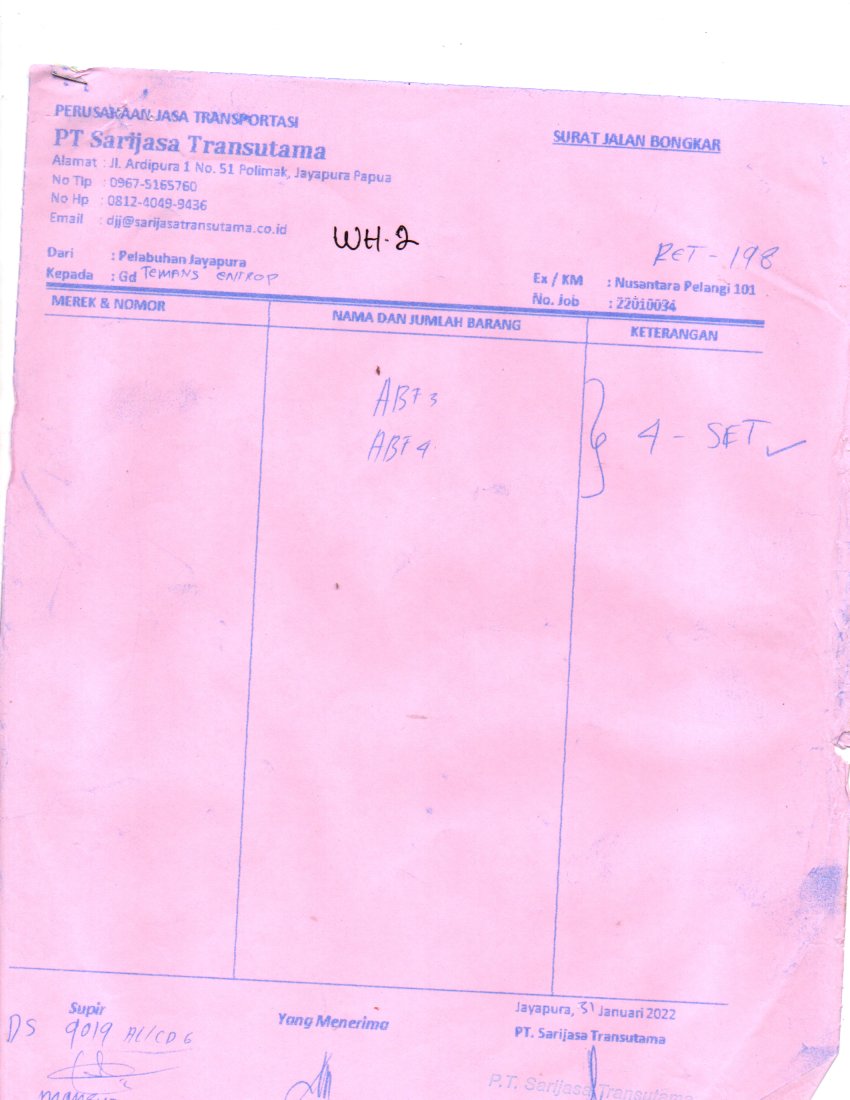 PERUSAHAAN JASA TRANSPORTASI
PT Sarijasa Transutama
Alamat : Jl. Ardipura 1 No. 51 Polimak, Jayapura Papua
No Tlp : 0967-5165760
No Hp : 0812-4049-9436
Email : djj@sarijasatransutama.co.id
SURAT JALAN BONGKAR
WH-2
RET - 198
Dari : Pelabuhan Jayapura
Kepada : Gd TEMANS ENTROP
Ex / KM : Nusantara Pelangi 101
No. Job : 22010034
MEREK & NOMOR
NAMA DAN JUMLAH BARANG
KETERANGAN
ABF 3
ABF 4
4 - SET
Supir
Yang Menerima
Jayapura, 31 Januari 2022
PT. Sarijasa Transutama
DS 9019 AL/CD6
P.T. Sarijasa Transutama